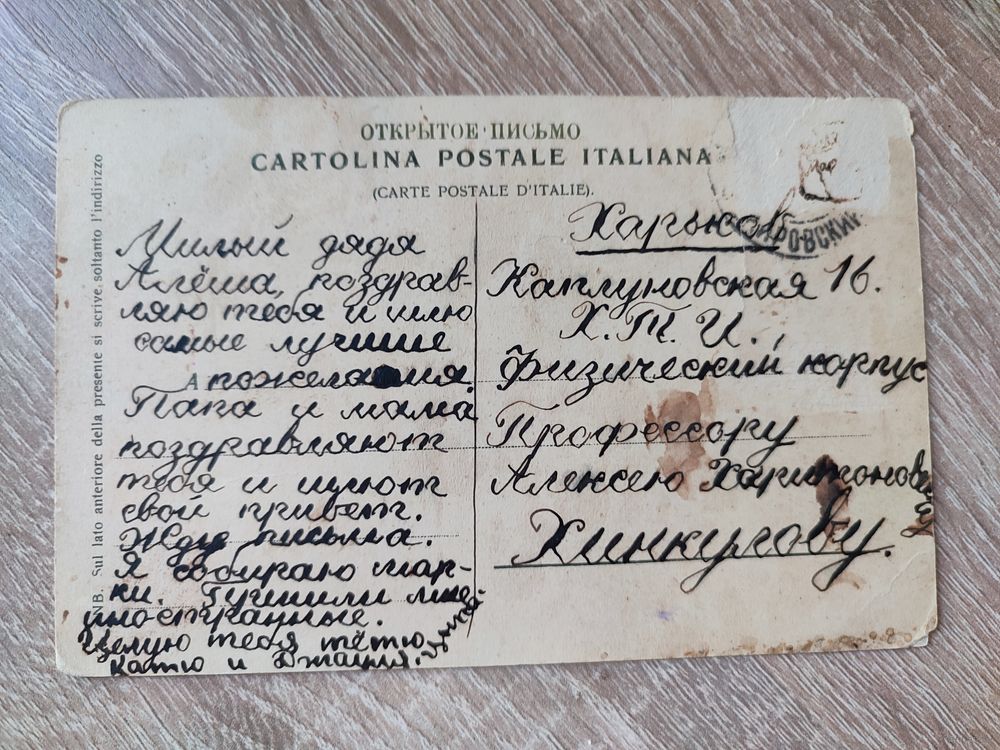 ОТКРЫТОЕ ПИСЬМО
CARTOLINA POSTALE ITALIANA
(CARTE POSTALE D'ITALIE).
NB. Sul lato anteriore della presente si scrive soltanto l'indirizzo
Милый дядя
Алёша, поздрав-
ляю тебя и шлю
самые лучшие
пожелания.
Папа и мама
поздравляют
тебя и шлют
свой привет.
Жду письма.
Я собираю мар-
ки. Гушили мне
иностранные.
Целую тебя тётю
Катю и
Харьков
Каплуновская 16.
Х.Т.И.,
Физический корпус
Профессору
Алексею Харитонович
Хинкулову.